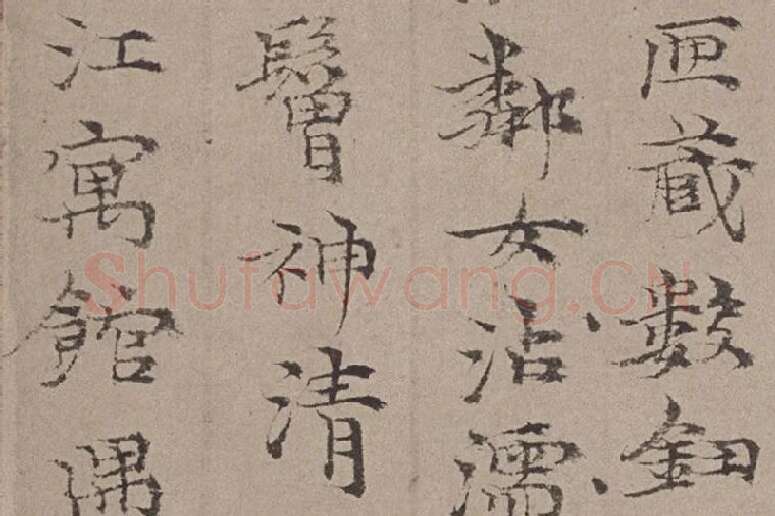 匣藏數鈿
鄰女沾濡
鬙神清
江寓館
Shufawang.CN